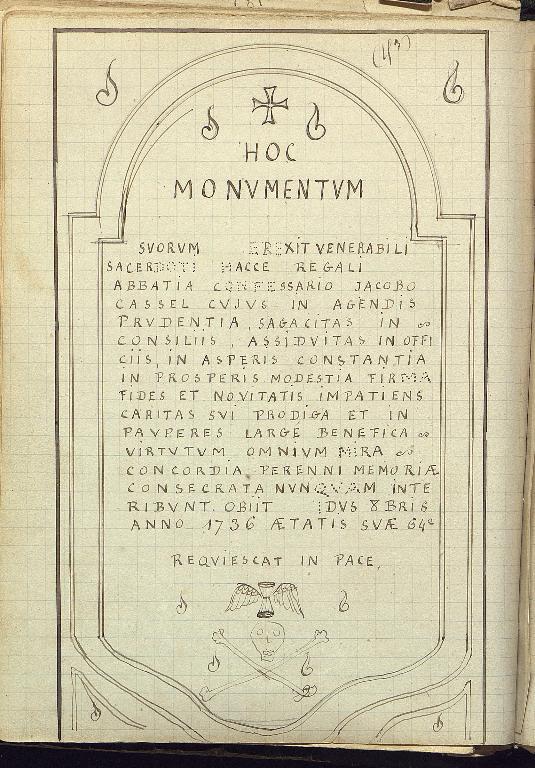 (43)
HOC
MONVMENTVM
SVORVM EREXIT VENERABILI
SACERDOTI HACCE REGALI
ABBATIA CONFESSARIO JACOBO
CASSEL CVJVS IN AGENDIS
PRVDENTIA, SAGACITAS IN
CONSILIIS, ASSIDVITAS IN OFFI
CIIS, IN ASPERIS CONSTANTIA
IN PROSPERIS MODESTIA FIRMA
FIDES ET NOVITATIS IMPATIENS
CARITAS SVI PRODIGA ET IN
PAVPERES LARGE BENEFICA
VIRTVTVM OMNIVM MIRA
CONCORDIA PERENNI MEMORIÆ
CONSECRATA NVNQVAM INTE
RIBVNT. OBIIT IDVS 8BRIS
ANNO 1736 ÆTATIS SVÆ 64
REQVIESCAT IN PACE.